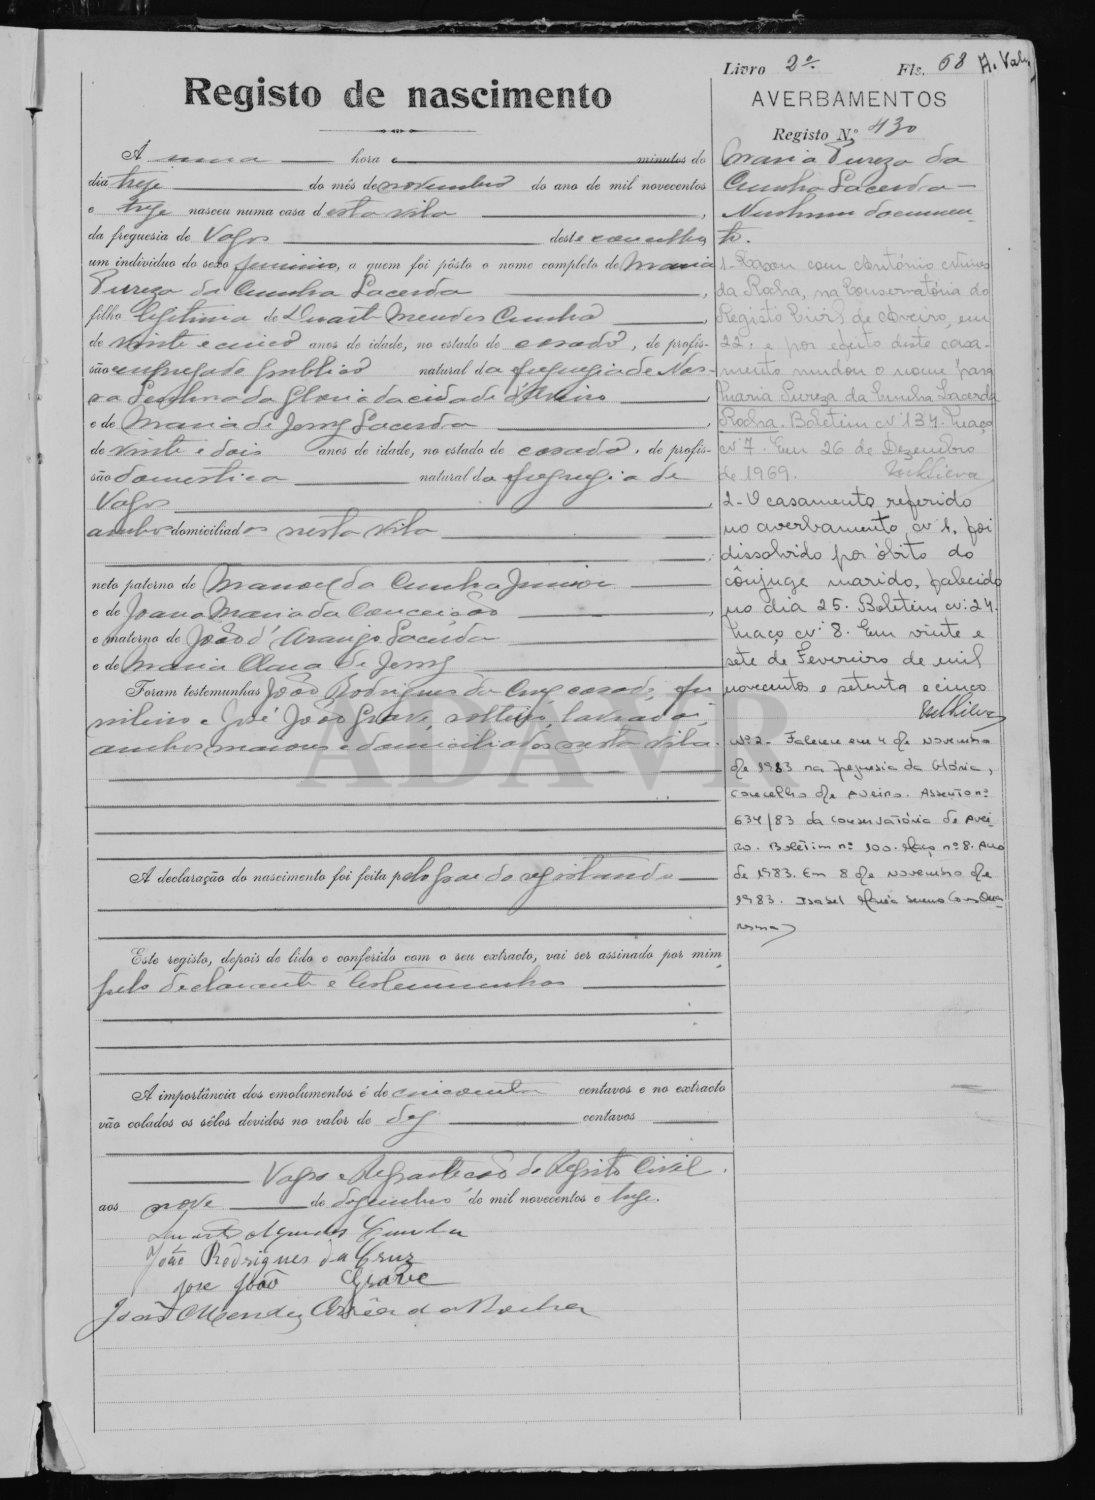 Livro 2º Fls. 68
Registo de nascimento
A uma hora e minutos do
dia treze do mês de novembro do ano de mil novecentos
e treze nasceu numa casa desta vila,
da freguesia de Vagos deste concelho,
um individuo do sexo feminino, a quem foi pôsto o nome completo de Maria
Pureza da Cunha Lacerda,
filha legitima de Duarte Mendes Cunha,
de vinte e cinco anos de idade, no estado de casado, de profis-
são empregado publico natural da freguesia de Nos-
sa Senhora da Gloria da cidade d'Aveiro,
e de Maria de Jesus Lacerda,
de vinte e dois anos de idade, no estado de casada, de profis-
são domestica natural da freguesia de
Vagos,
ambos domiciliados nesta vila
neto paterno de Manoel da Cunha Junior
e de Joana Maria da Conceição,
e materno de João d'Araujo Lacerda
e de Maria Clara de Jesus
Foram testemunhas João Rodrigues da Cruz, casado,
e José João Grave, solteiro, lavrador,
ambos maiores e domiciliados nesta vila.
A declaração do nascimento foi feita pelo pae do registando
Este registo, depois de lido e conferido com o seu extracto, vai ser assinado por mim,
pelo declarante e testemunhas
A importância dos emolumentos é de cincoenta centavos e no extracto
vão colados os sêlos devidos no valor de dez centavos
Vagos e Repartição do Registo Civil.
aos nove de dezembro de mil novecentos e treze.
Duarte Mendes Cunha
João Rodrigues da Cruz
José João Grave
João Mendes Corrêa da Rocha
AVERBAMENTOS
Registo N.º 430
Maria Pureza da
Cunha Lacerda
Nenhum documen-
to.
1- Casou com António
da Rocha, na Conservatória do
Registo Civil de Aveiro, em
22. e por efeito deste casa-
mento mudou o nome para
Maria Pureza da Cunha Lacerda
Rocha. Boletim nº 137. Maço
nº 7. Em 26 de Dezembro
de 1969.
2- O casamento referido
no averbamento nº 1, foi
dissolvido por óbito do
cônjuge marido, falecido
no dia 25. Boletim nº 24.
Maço nº 8. Em vinte e
sete de Fevereiro de mil
novecentos e setenta e cinco
Nº 2- Faleceu em 4 de novembro
de 1983 na freguesia da Glória,
concelho de Aveiro. Assento nº
634/83 da Conservatória de Avei-
ro. Boletim nº 100. Maço nº 8. Ano
de 1983. Em 8 de novembro de
1983. Isabel Maria
ADAVR